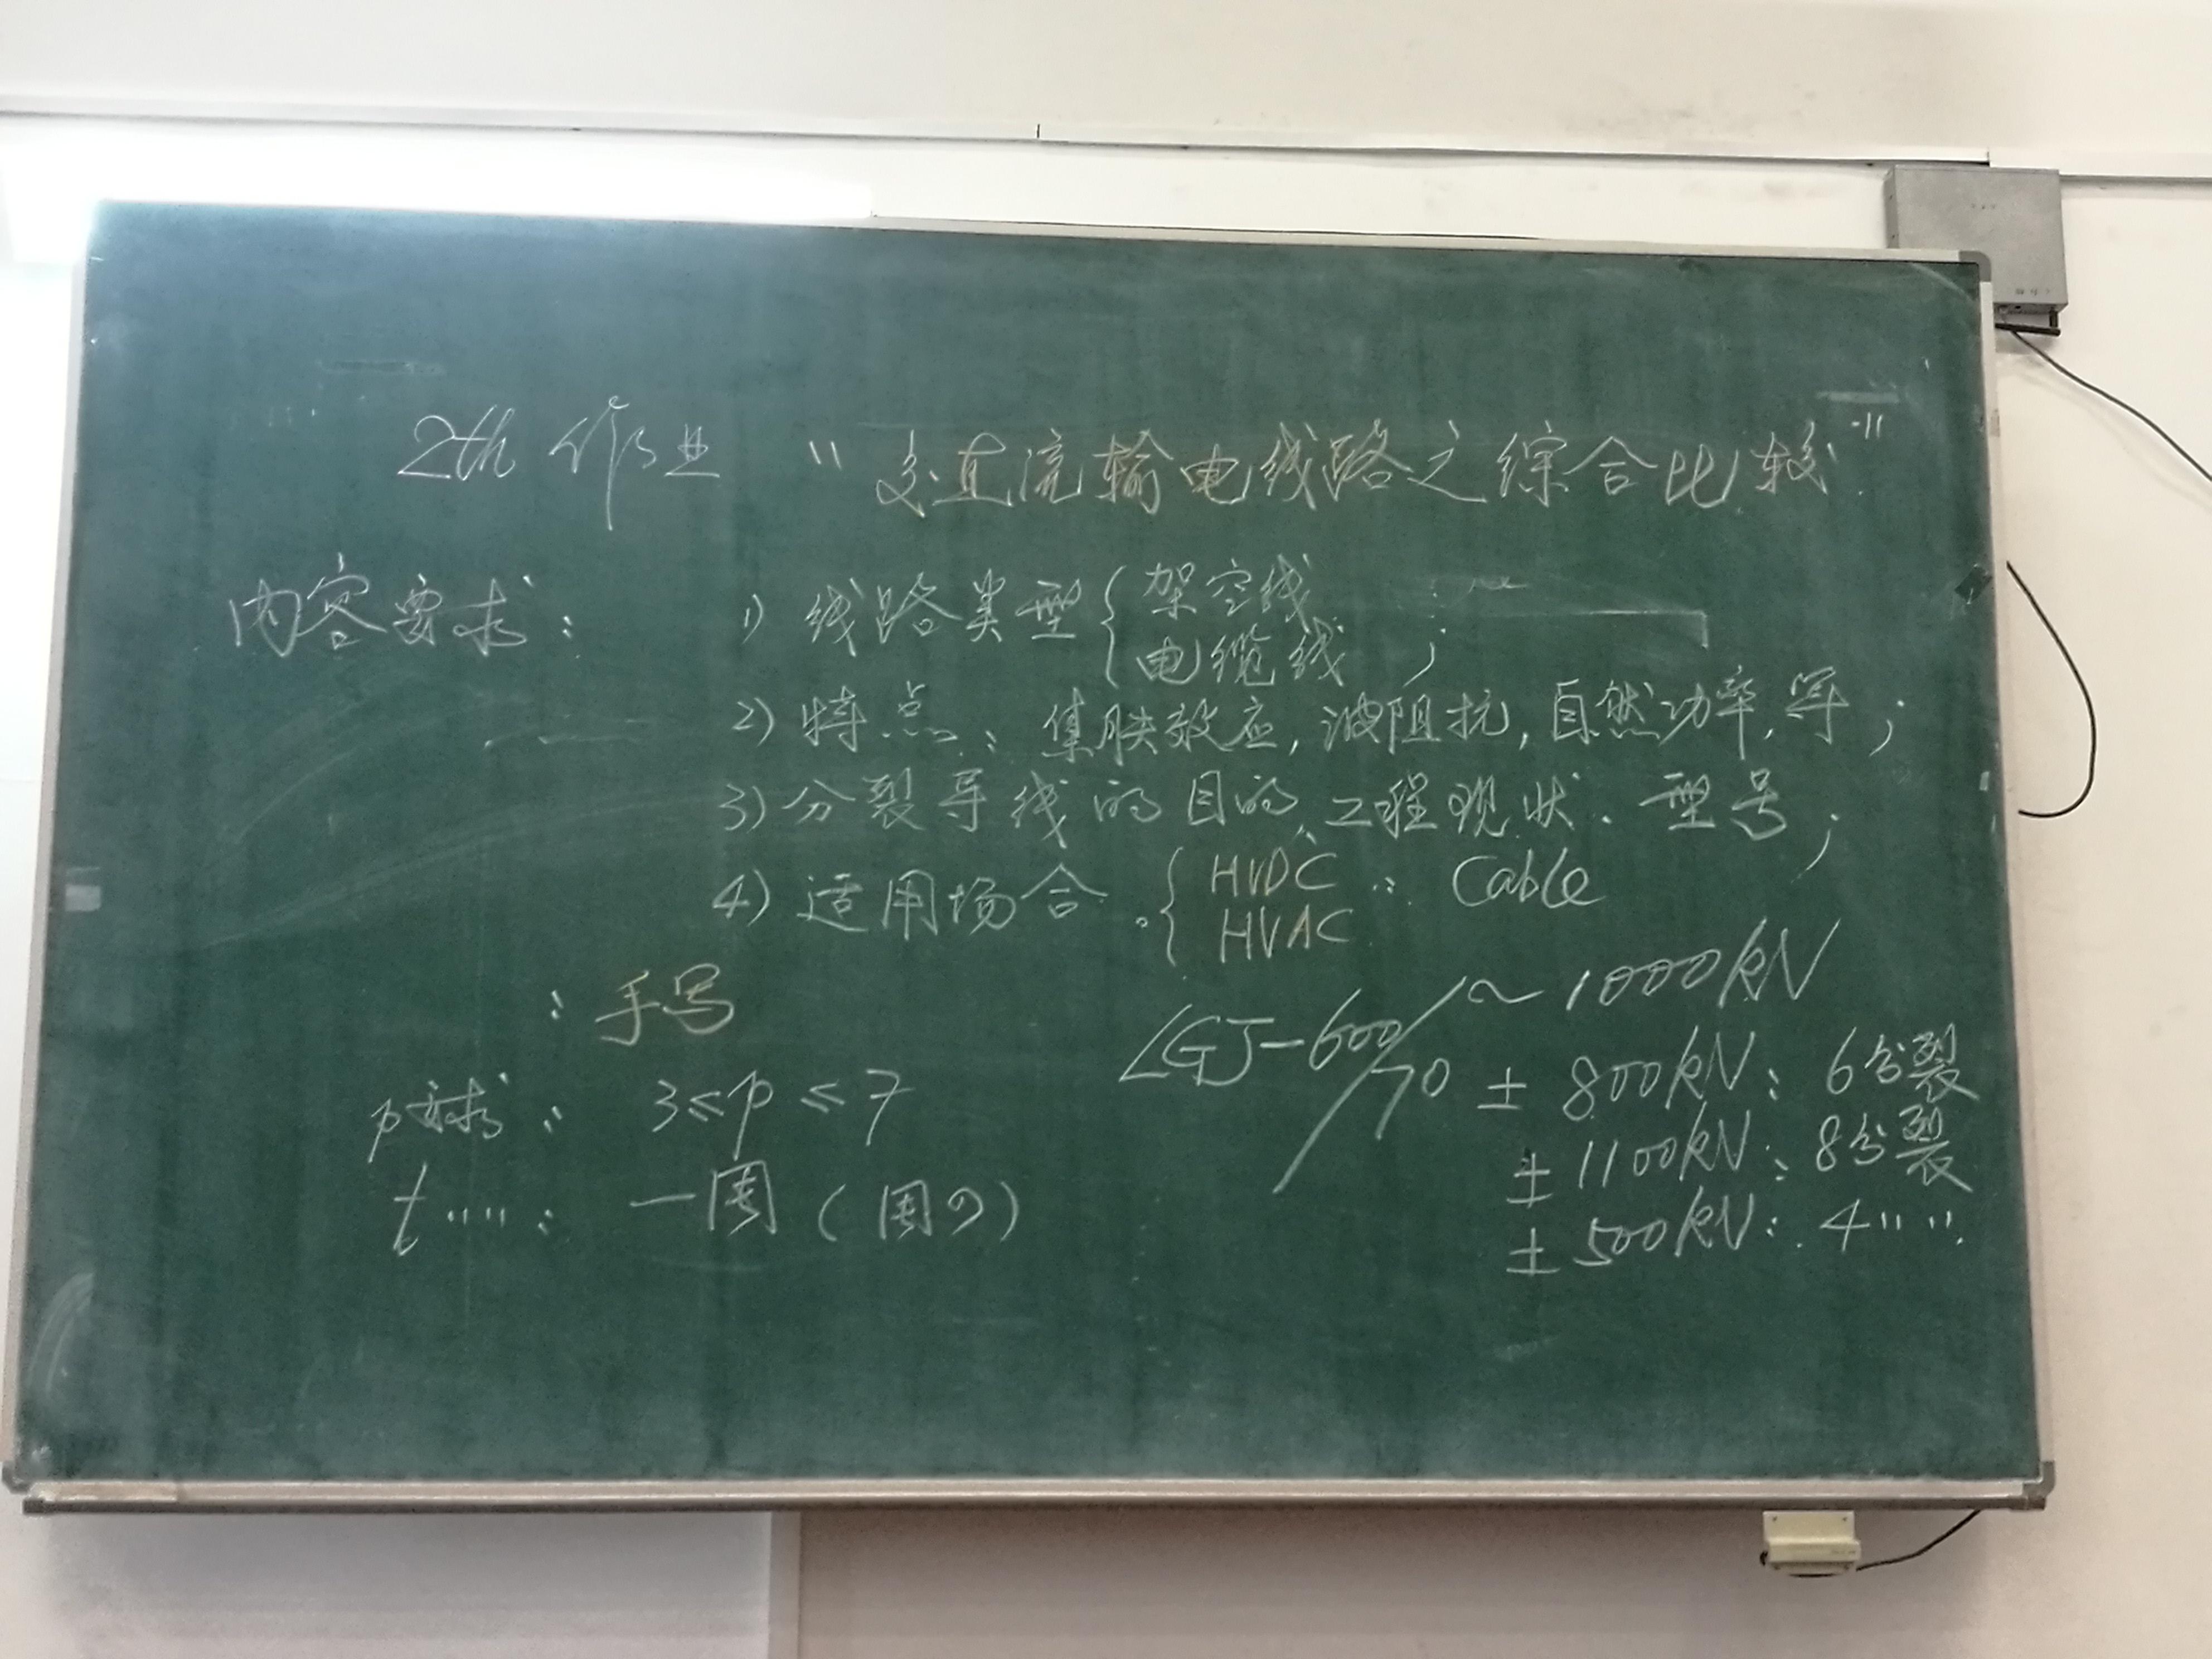 2th 作业 "交直流输电线路之综合比较"
内容要求: 1) 线路类型 { 架空线
电缆线 ;
2) 特点: 集肤效应, 波阻抗, 自然功率, 等;
3) 分裂导线的目的、工程现状、型号;
4) 适用场合: { HVDC : Cable
HVAC
: 手写
~ 1000kV
LGJ-600/70
P要求: 3≤p≤7
± 800kV: 6分裂
± 1100kV: 8分裂
t〃〃: 一周(周
± 500kV: 4〃〃.